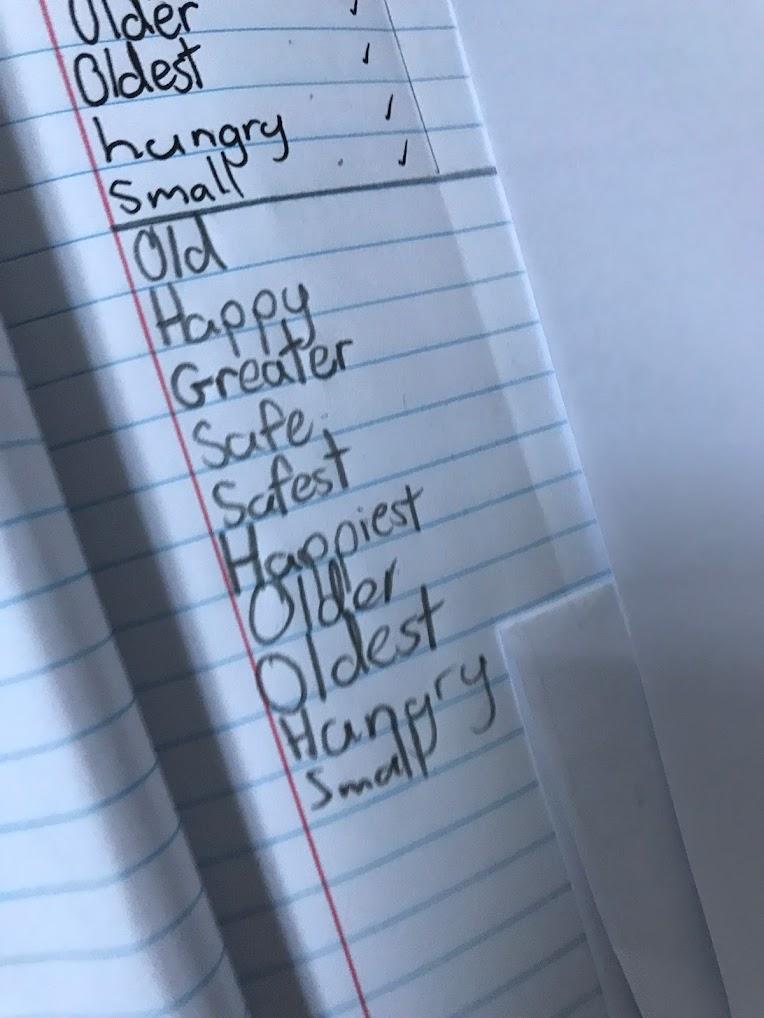 Older
Oldest
hungry
Small
Old
Happy
Greater
Safe
Safest
Happiest
Older
Oldest
Hungry
Small